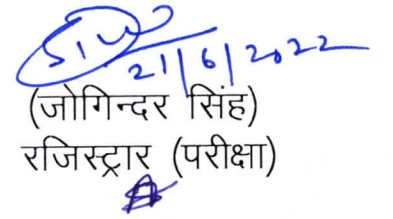 21/6/2022
(जोगिन्दर सिंह)
रजिस्ट्रार (परीक्षा)